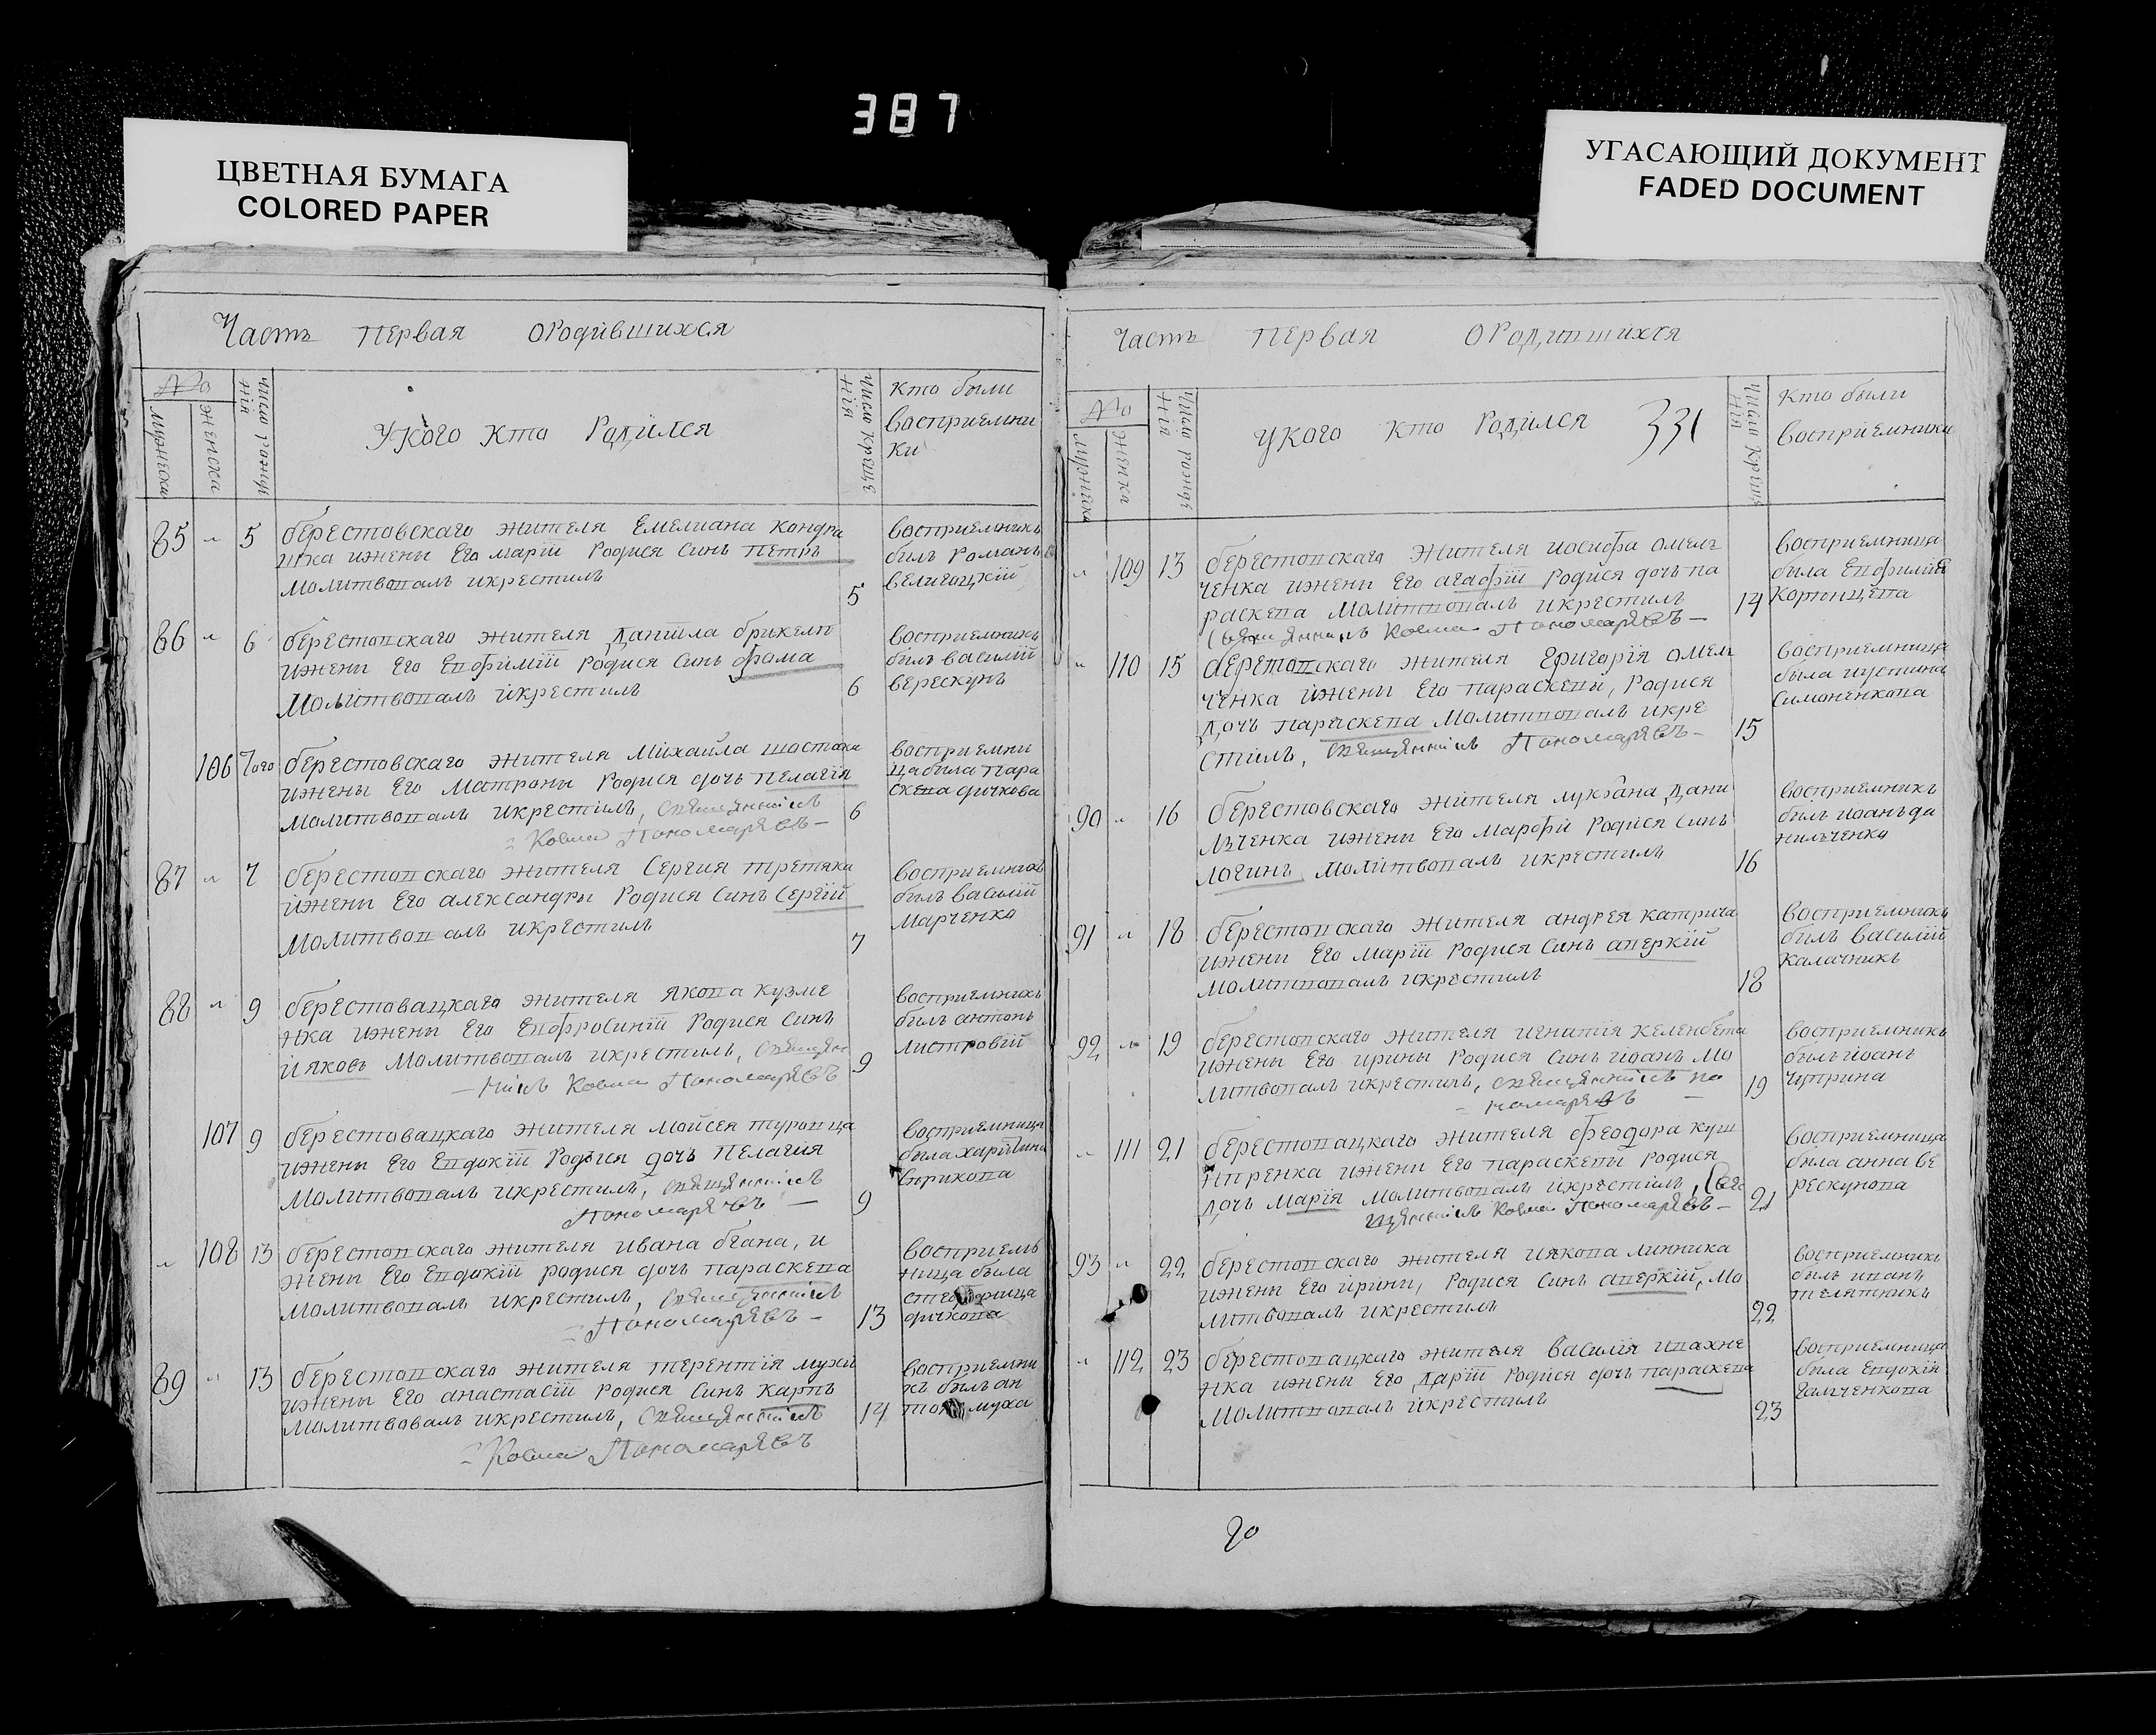 387
ЦВЕТНАЯ БУМАГА
COLORED PAPER
УГАСАЮЩИЙ ДОКУМЕНТ
FADED DOCUMENT
Часть первая ородившихся
№
мужеска
женска
число рожде
нія
У кого кто Родился
число креще
нія
кто были
восприемни
ки
85 " 5
берестовскаго жителя Емелиана кондра
шка ижены Его маріи Родися Синъ петръ
молитвовалъ икрестилъ
5
восприемникъ
билъ Романъ
86 " 6
берестовскаго жителя даниила
ижени Его Евфиміи Родися Синъ фома
Молитвовалъ икрестилъ
6
восприемникъ
билъ василій
верескунъ
106 7ого
берестовскаго жителя Михаила шостака
ижены Его Матроны Родися дочь пелагія
молитвовалъ икрестилъ, священникъ
Косма Пономаревъ
6
восприемни
ца била пара
скева дичкова
87 " 7
берестовскаго жителя Сергия третяка
ижены Его александры Родися Синъ Сергій
молитвовалъ икрестилъ
7
восприемникъ
билъ василій
Марченко
88 " 9
берестовацкаго жителя якова кузме
нка ижены Его Евфросиніи Родися Синъ
ияковъ молитвовалъ икрестилъ, священ
никъ Косма Пономаревъ
9
восприемникъ
билъ антонъ
листровій
107 9
берестовацкаго жителя мойсея туровца
ижены Его Евдокіи Родися дочь пелагия
молитвовалъ икрестилъ, священникъ
Пономаревъ
9
восприемница
била
" 108 13
берестовскаго жителя ивана бгана, и
жени Его Евдокіи родися дочь параскева
молитвовалъ икрестилъ, священникъ
Пономаревъ
13
восприем
ница была
дичкова
89 " 13
берестовскаго жителя терентія мухи
ижены Его анастасіи родися Синъ карпъ
молитвовалъ икрестилъ, священникъ
Косма Пономаревъ
14
восприемни
къ былъ ан
тонъ муха
Часть первая ородившихся
№
мужеска
женска
число рожде
нія
у кого кто родился 331
число креще
нія
кто были
восприемники
" 109 13
берестовскаго жителя иосифа омель
ченка ижены Его агафіи Родися дочь па
раскева молитвовалъ икрестилъ
Священникъ Косма Пономаревъ
14
восприемница
была Евфимія
" 110 15
берестовскаго жителя григорія омель
ченка ижены Его параскевы, Родися
дочь параскева молитвовалъ икре
стилъ, священникъ Пономаревъ
15
восприемница
была иустина
симоненкова
90 " 16
берестовскаго жителя лукяана дани
льченка ижены Его Марфи Родися Синъ
логинъ молитвовалъ икрестилъ
16
восприемникъ
билъ иоанъ да
нильченко
91 " 18
берестовскаго жителя андрея катрича
ижени Его маріи Родися Синъ аверкій
молитвовалъ икрестилъ
18
восприемникъ
билъ василій
калачникъ
92 " 19
берестовскаго жителя игнатія келенбета
ижены Его ирины Родися Синъ иоанъ мо
литвовалъ икрестилъ, священникъ по
номаревъ
19
восприемникъ
былъ иоанъ
чуприна
" 111 21
берестовацкаго жителя феодора куш
нпренка ижены Его параскевы Родися
дочь марія молитвовалъ икрестилъ, Свя
щенникъ Косма Пономаревъ
21
восприемница
была анна ве
рескунова
93 " 22
берестовскаго жителя иякова линника
ижены Его ірини, Родися Синъ аверкій, мо
литвовалъ икрестилъ
22
восприемникъ
былъ иванъ
телятникъ
" 112 23
берестовацкаго жителя василія ивахне
нка ижены Его даріи Родися дочь параскева
молитвовалъ икрестилъ
23
восприемница
была Евдокія
галченкова
20